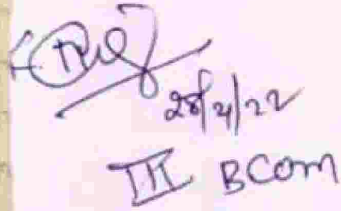 28/4/22
III BCom